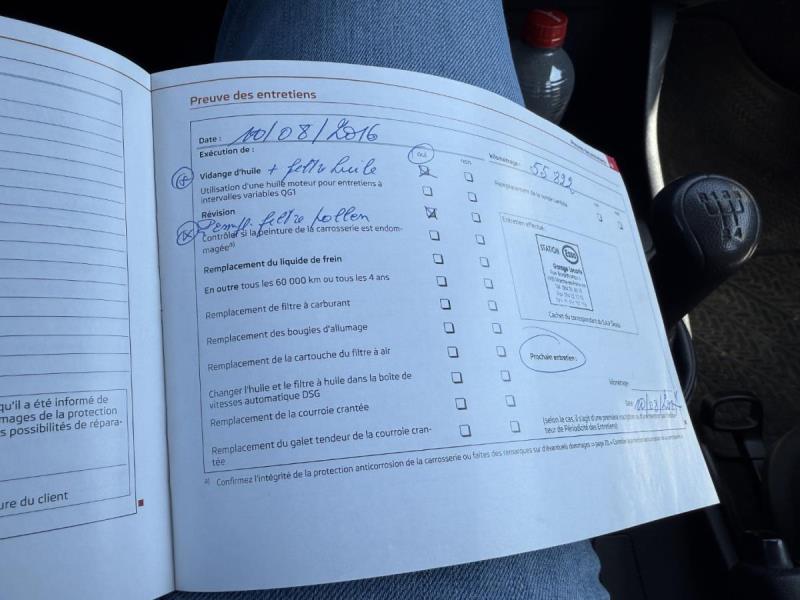 Preuve des entretiens
Date : 10/08/2016
Exécution de :
oui
non
kilométrage : 55 822
Vidange d'huile + filtre huile
Utilisation d'une huile moteur pour entretiens à
intervalles variables QG1
Révision
Rempl. filtre pollen
Contrôler si la peinture de la carrosserie est endom-
magée a)
Remplacement du liquide de frein
En outre tous les 60 000 km ou tous les 4 ans
Remplacement de filtre à carburant
Remplacement des bougies d'allumage
Remplacement de la cartouche du filtre à air
Changer l'huile et le filtre à huile dans la boîte de
vitesses automatique DSG
Remplacement de la courroie crantée
Remplacement du galet tendeur de la courroie cran-
tée
Entretien effectué :
STATION Esso
Cachet du correspondant du S.A.V. Škoda
Prochain entretien :
kilométrage :
Date : 10/08/
(selon le cas, il s'agit d'une première
teur de Périodicité des Entretiens)
a) Confirmez l'intégrité de la protection anticorrosion de la carrosserie ou faites des remarques sur d'éventuels dommages
qu'il a été informé de
mages de la protection
s possibilités de répara-
ure du client
1 3 5
2 4